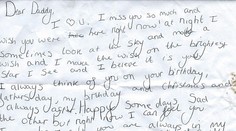 Dear Daddy,
I O U. I miss you so much and
wish you were here right now! at night I
sometimes look at the sky and make a
wish and I make the wish on the brightest
star I see and I believe it is you
I always think of you on your birthday,
fathers day, my birthday and Christmas and
always Happy some days Sad
the other but right now I can feel you
you are always in my